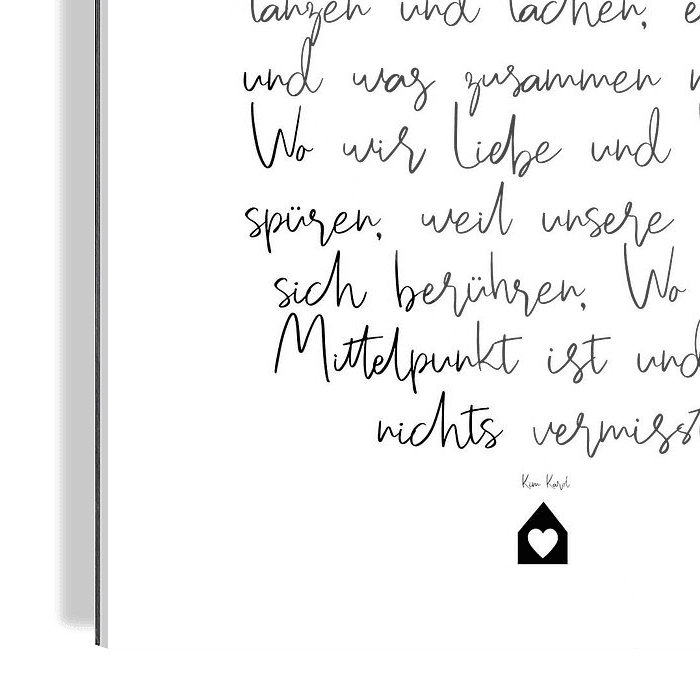 tanzen und lachen, e
und was zusammen
Wo wir Liebe und
spüren, weil unsere
sich berühren, Wo
Mittelpunkt ist und
nichts vermisst
Kim Karol